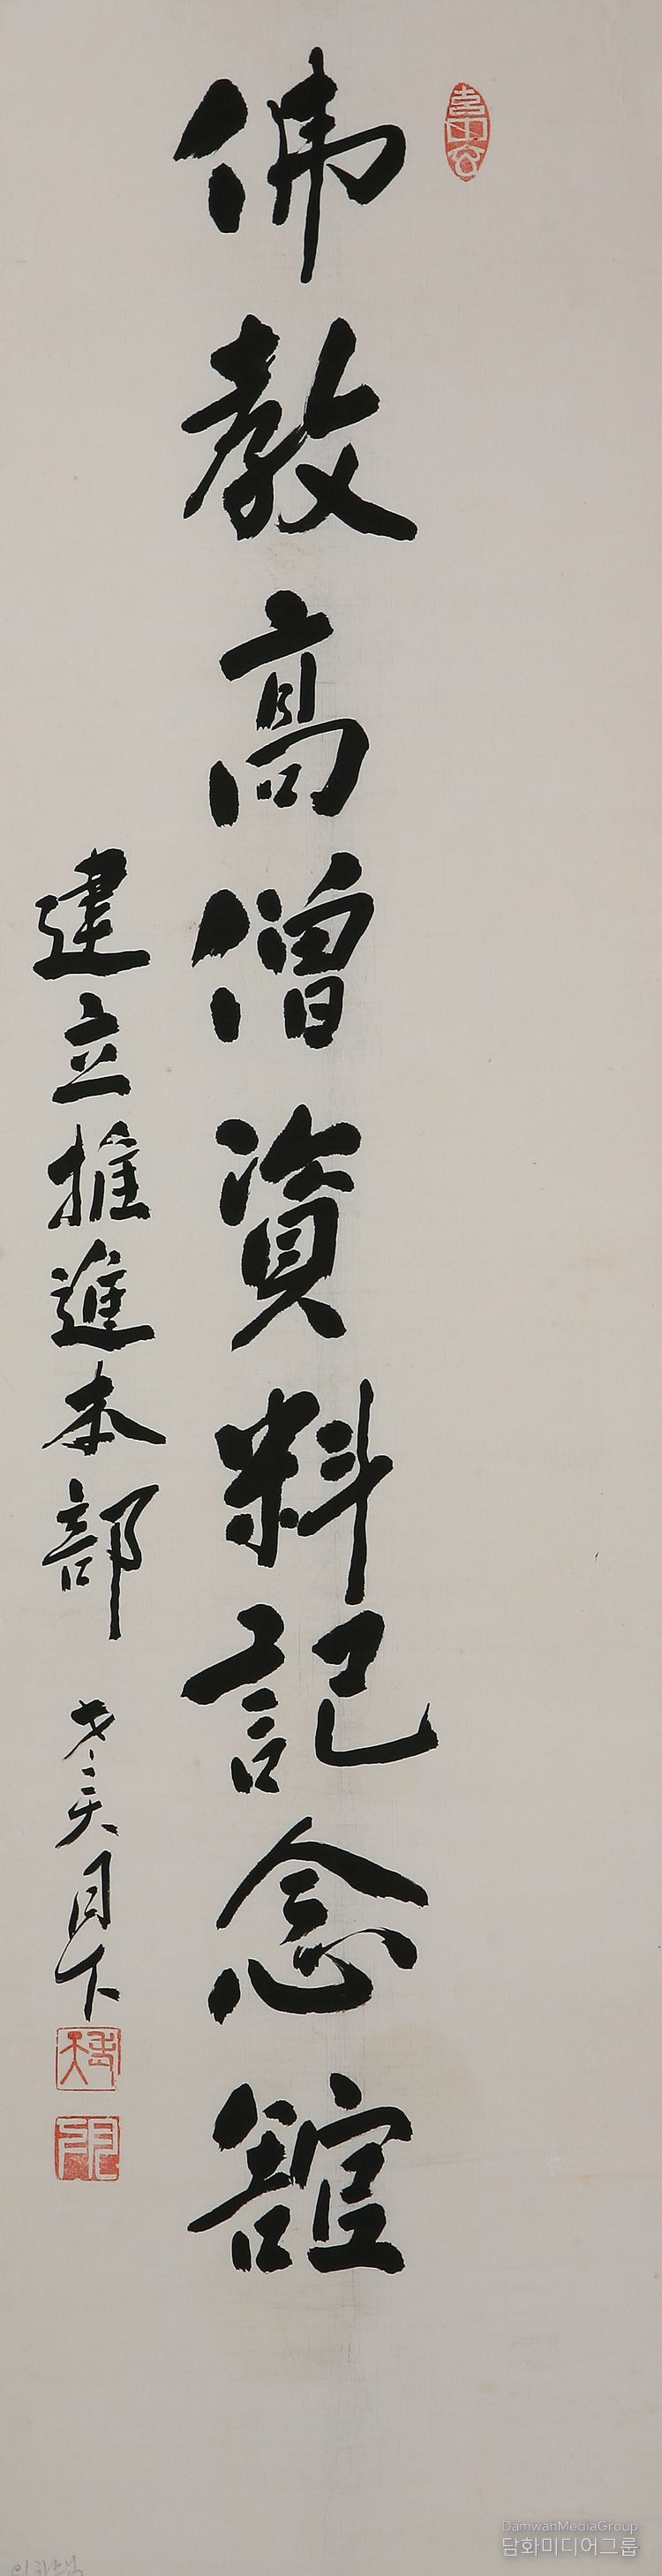 佛教高僧資料記念舘
建立推進本部 老天月下
DamwanMediaGroup
담화미디어그룹